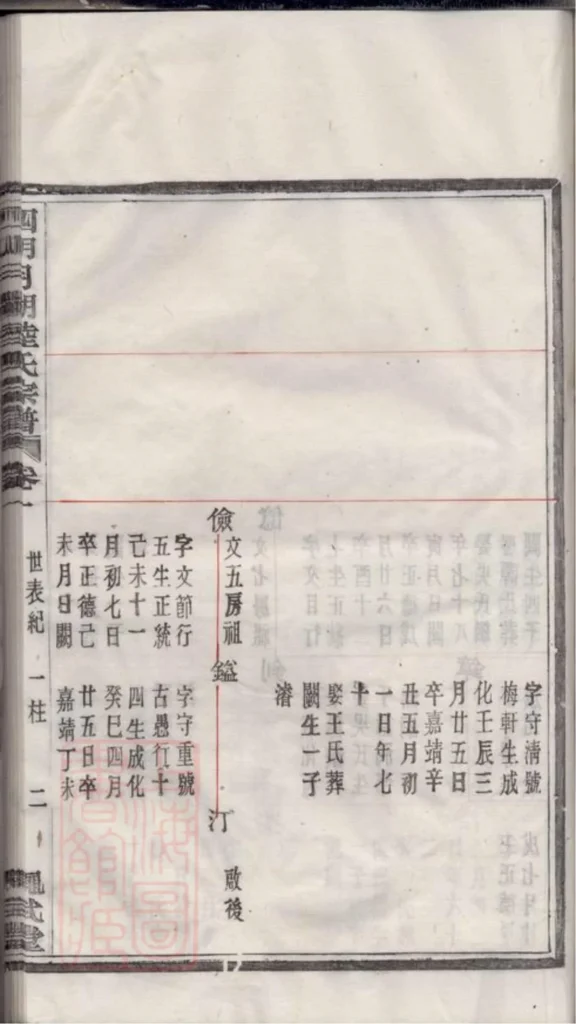 字守清號
梅軒生成
化壬辰三
月廿五日
卒嘉靖辛
丑五月初
一日年七
十
娶王氏葬
闕生一子
濬
儉
文五房祖
鎰
汀
後
字文節行
五生正統
己未十一
月初七日
卒正德己
未月日闕
字守重號
古愚行十
四生成化
癸巳四月
廿五日卒
嘉靖丁未
四明月湖陸氏宗譜 卷一
世表紀 一柱 二
式堂